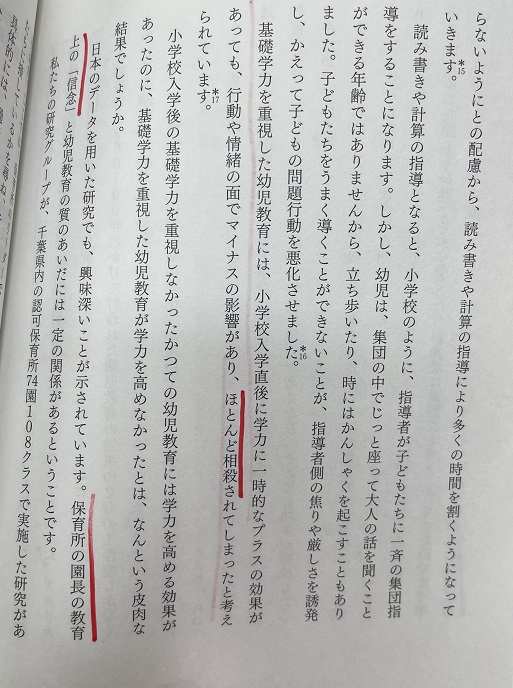 らないようにとの配慮から、読み書きや計算の指導により多くの時間を割くようになって
いきます。*15
読み書きや計算の指導となると、小学校のように、指導者が子どもたちに一斉の集団指
導をすることになります。しかし、幼児は、集団の中でじっと座って大人の話を聞くこと
ができる年齢ではありませんから、立ち歩いたり、時にはかんしゃくを起こすこともあり
ました。子どもたちをうまく導くことができないことが、指導者側の焦りや厳しさを誘発
し、かえって子どもの問題行動を悪化させました。*16
基礎学力を重視した幼児教育には、小学校入学直後に学力に一時的なプラスの効果が
あっても、行動や情緒の面でマイナスの影響があり、ほとんど相殺されてしまったと考え
られています。*17
小学校入学後の基礎学力を重視しなかったかつての幼児教育には学力を高める効果が
あったのに、基礎学力を重視した幼児教育が学力を高めなかったとは、なんという皮肉な
結果でしょうか。
日本のデータを用いた研究でも、興味深いことが示されています。保育所の園長の教育
上の「信念」と幼児教育の質のあいだには一定の関係があるということです。
私たちの研究グループが、千葉県内の認可保育所74園108クラスで実施した研究があ